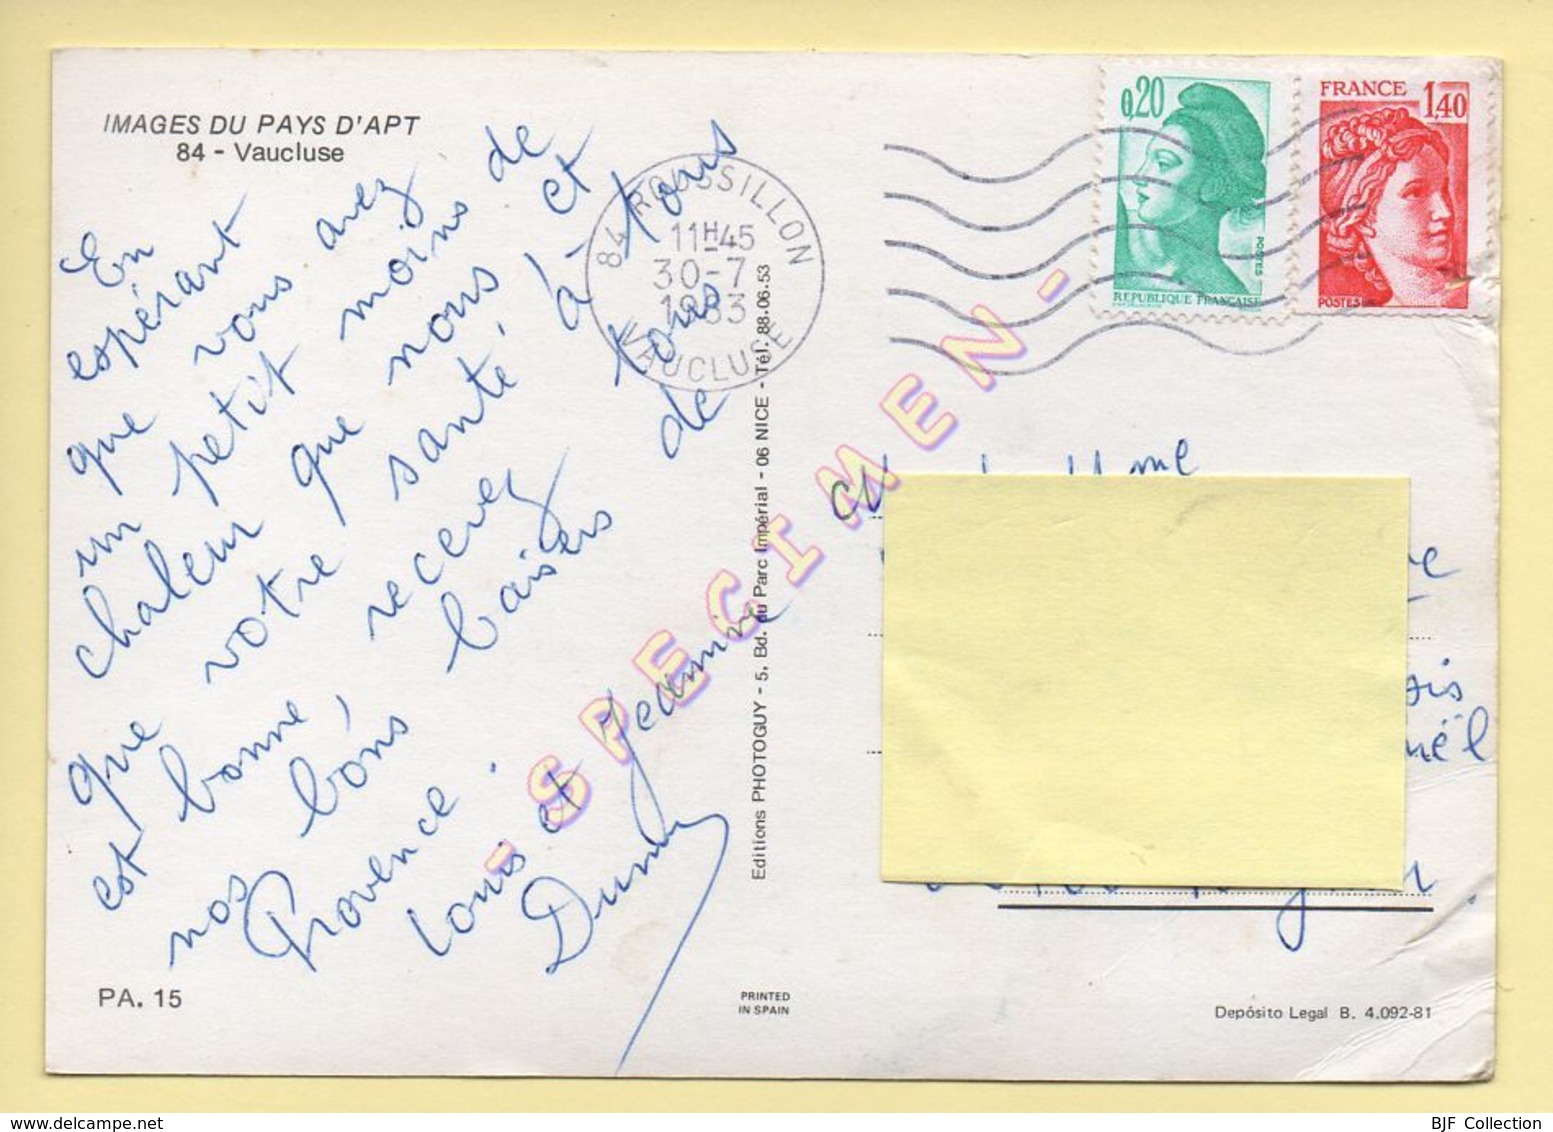 IMAGES DU PAYS D'APT
84 - Vaucluse
En
espérant
que vous avez
un petit moins de
chaleur que nous et
que votre santé à tous
est bonne, recevez tous
nos bons baisers de
Provence.
Louis et Jeannine
PA. 15
84 ROUSSILLON
11H45
30-7
1983
VAUCLUSE
Editions PHOTOGUY - 5, Bd. du Parc Impérial - 06 NICE - Tél. 88.06.53
PRINTED
IN SPAIN
- SPECIMEN -
0,20
POSTES
REPUBLIQUE FRANÇAISE
FRANCE 1,40
POSTES
Mme
Depósito Legal B. 4.092-81
BJF Collection